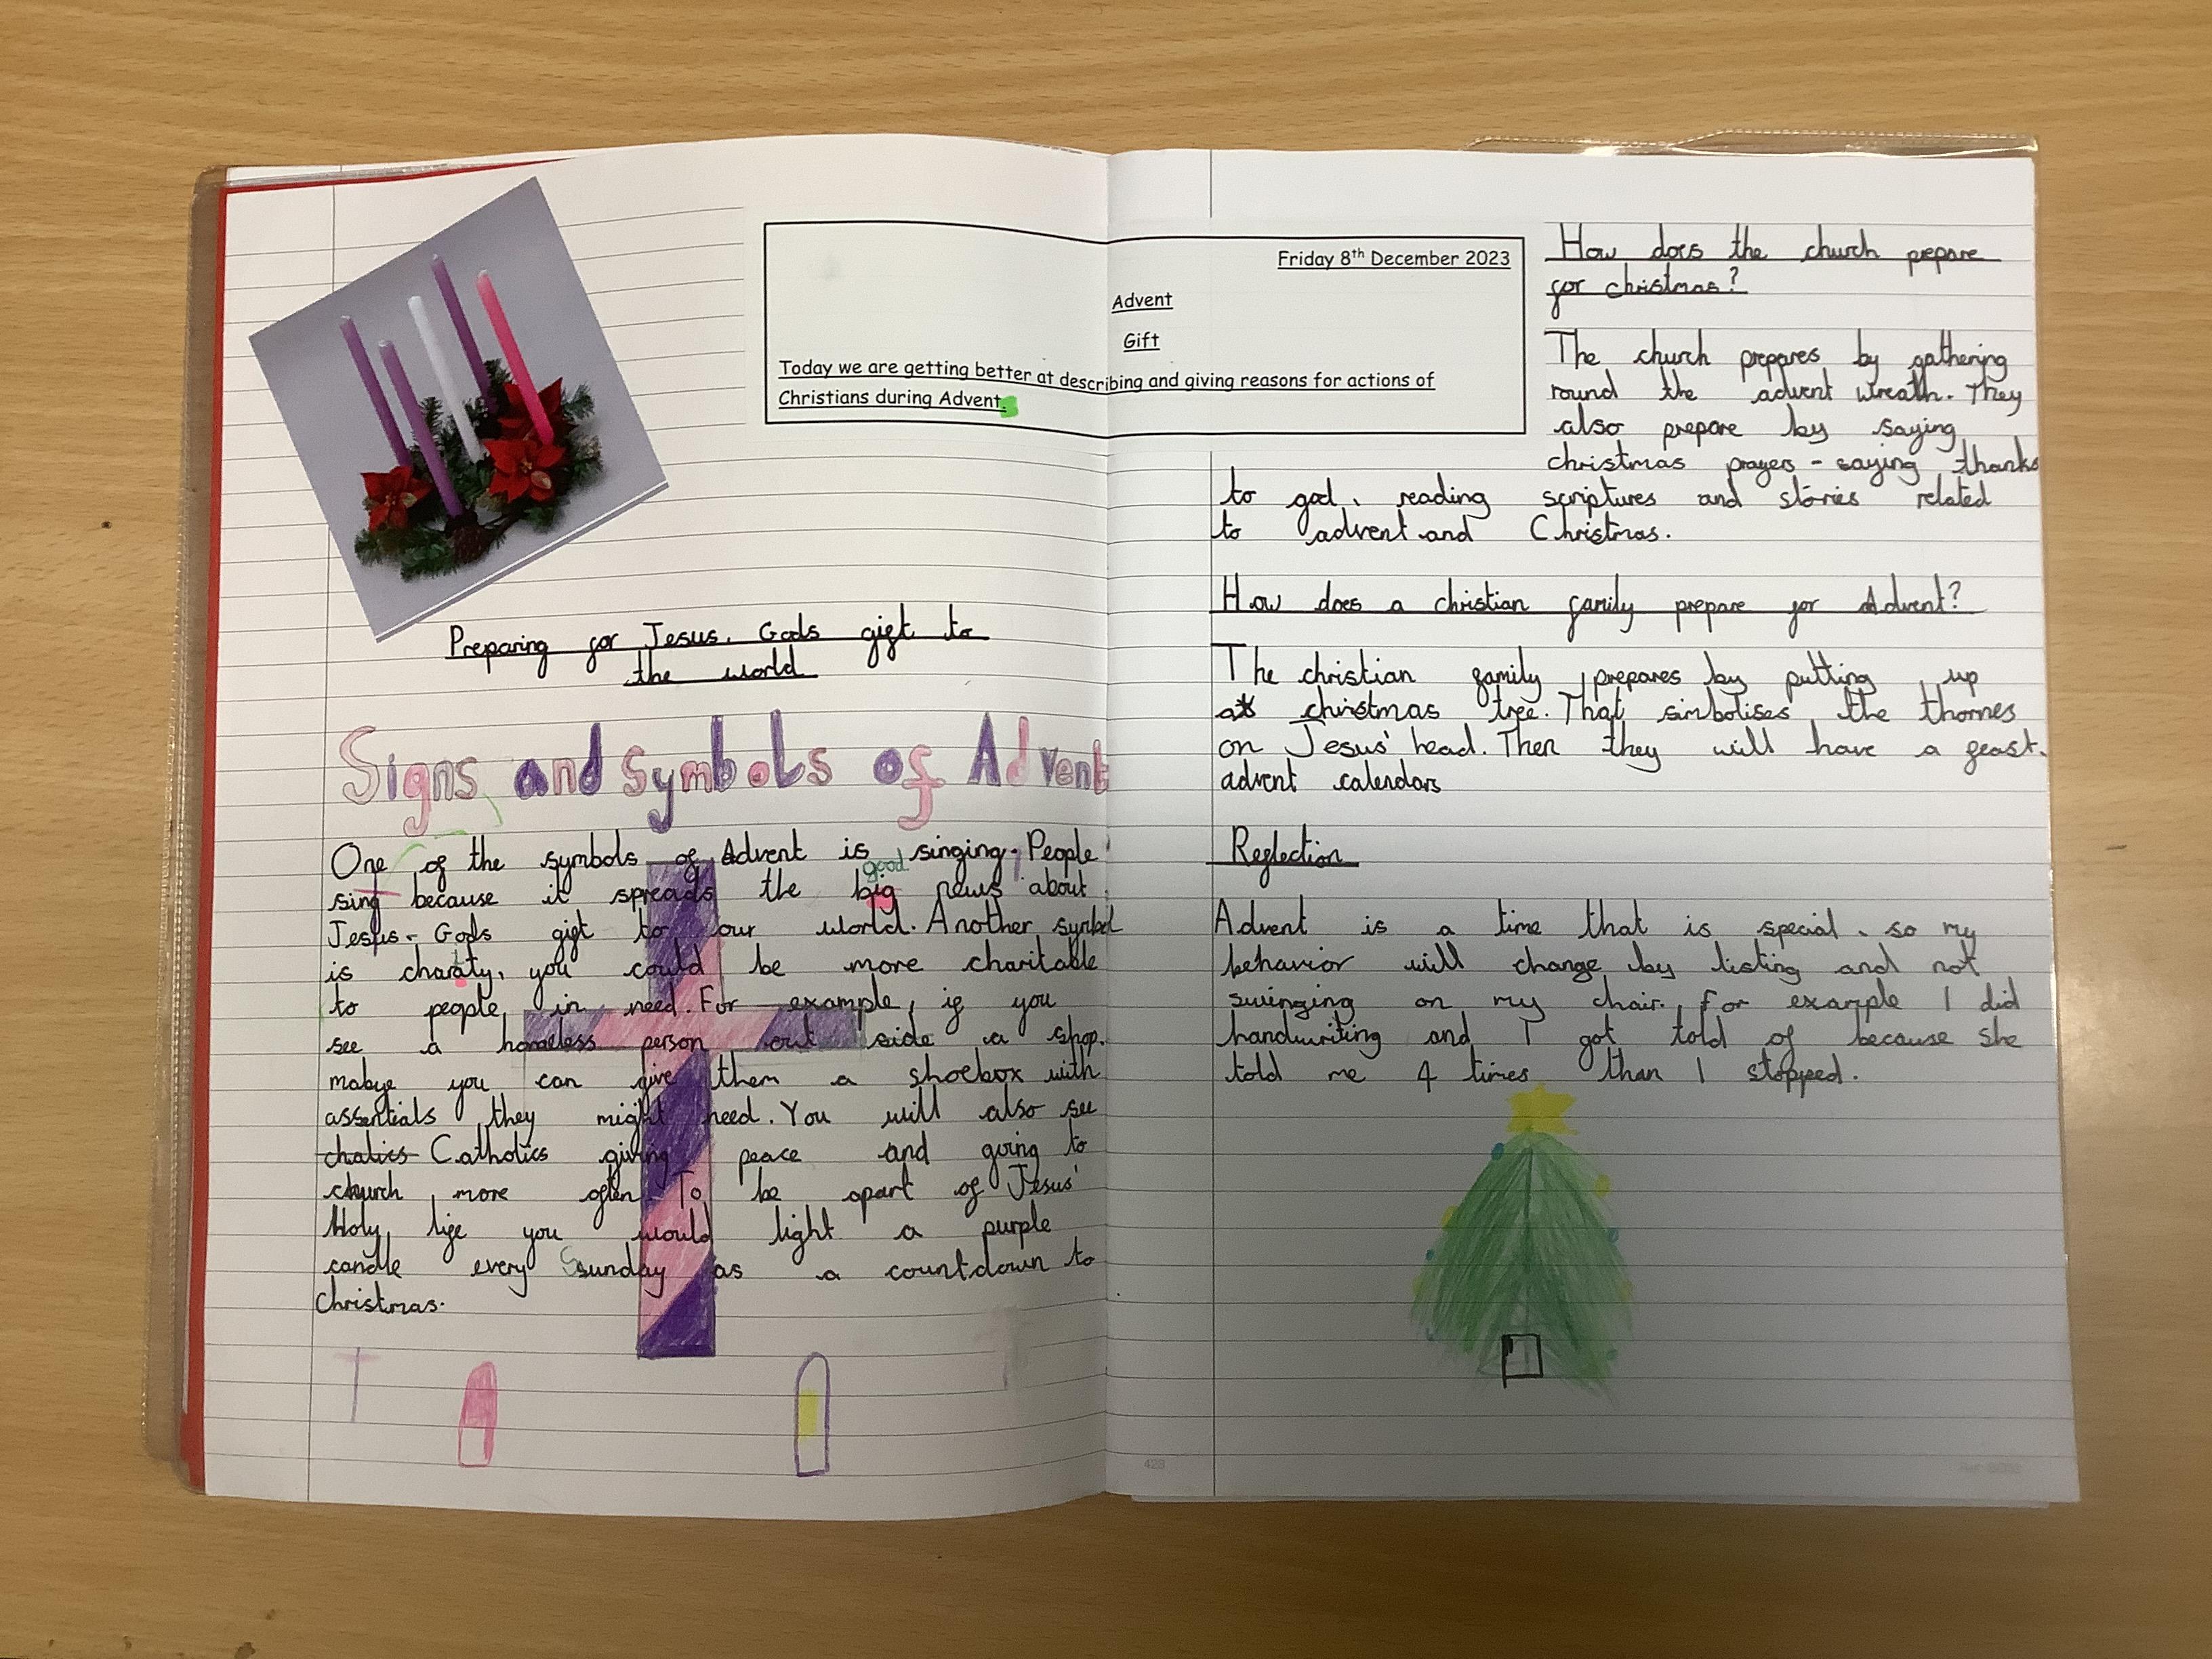 Friday 8th December 2023
Advent
Gift
Today we are getting better at describing and giving reasons for actions of
Christians during Advent.
Preparing for Jesus. Gods gift to
the world
Signs and symbols of Advent
One of the symbols of Advent is singing. People
good
sing because it spreads the big news about
Jesus - Gods gift to our world. Another symbol
is charity, you could be more charitable
to people in need. For example, if you
see a homeless person out side a shop.
mabye you can give them a shoebox with
assentials they might need. You will also see
chalics Catholics giving peace and going to
church more often. To be apart of Jesus'
Holy life you would light a purple
candle every Sunday as a countdown to
Christmas.
How does the church prepare
for christmas?
The church prepares by gathering
round the advent wreath. They
also prepare by saying
christmas prayers - saying thanks
to god, reading scriptures and stories related
to advent and Christmas.
How does a christian family prepare for Advent?
The christian family prepares by putting up
a christmas tree. That simbolises the thornes
on Jesus' head. Then they will have a feast.
advent calendars
Reflection
Advent is a time that is special, so my
behavior will change by listing and not
swinging on my chair. For example I did
handwriting and I got told of because she
told me 4 times than I stopped.
428